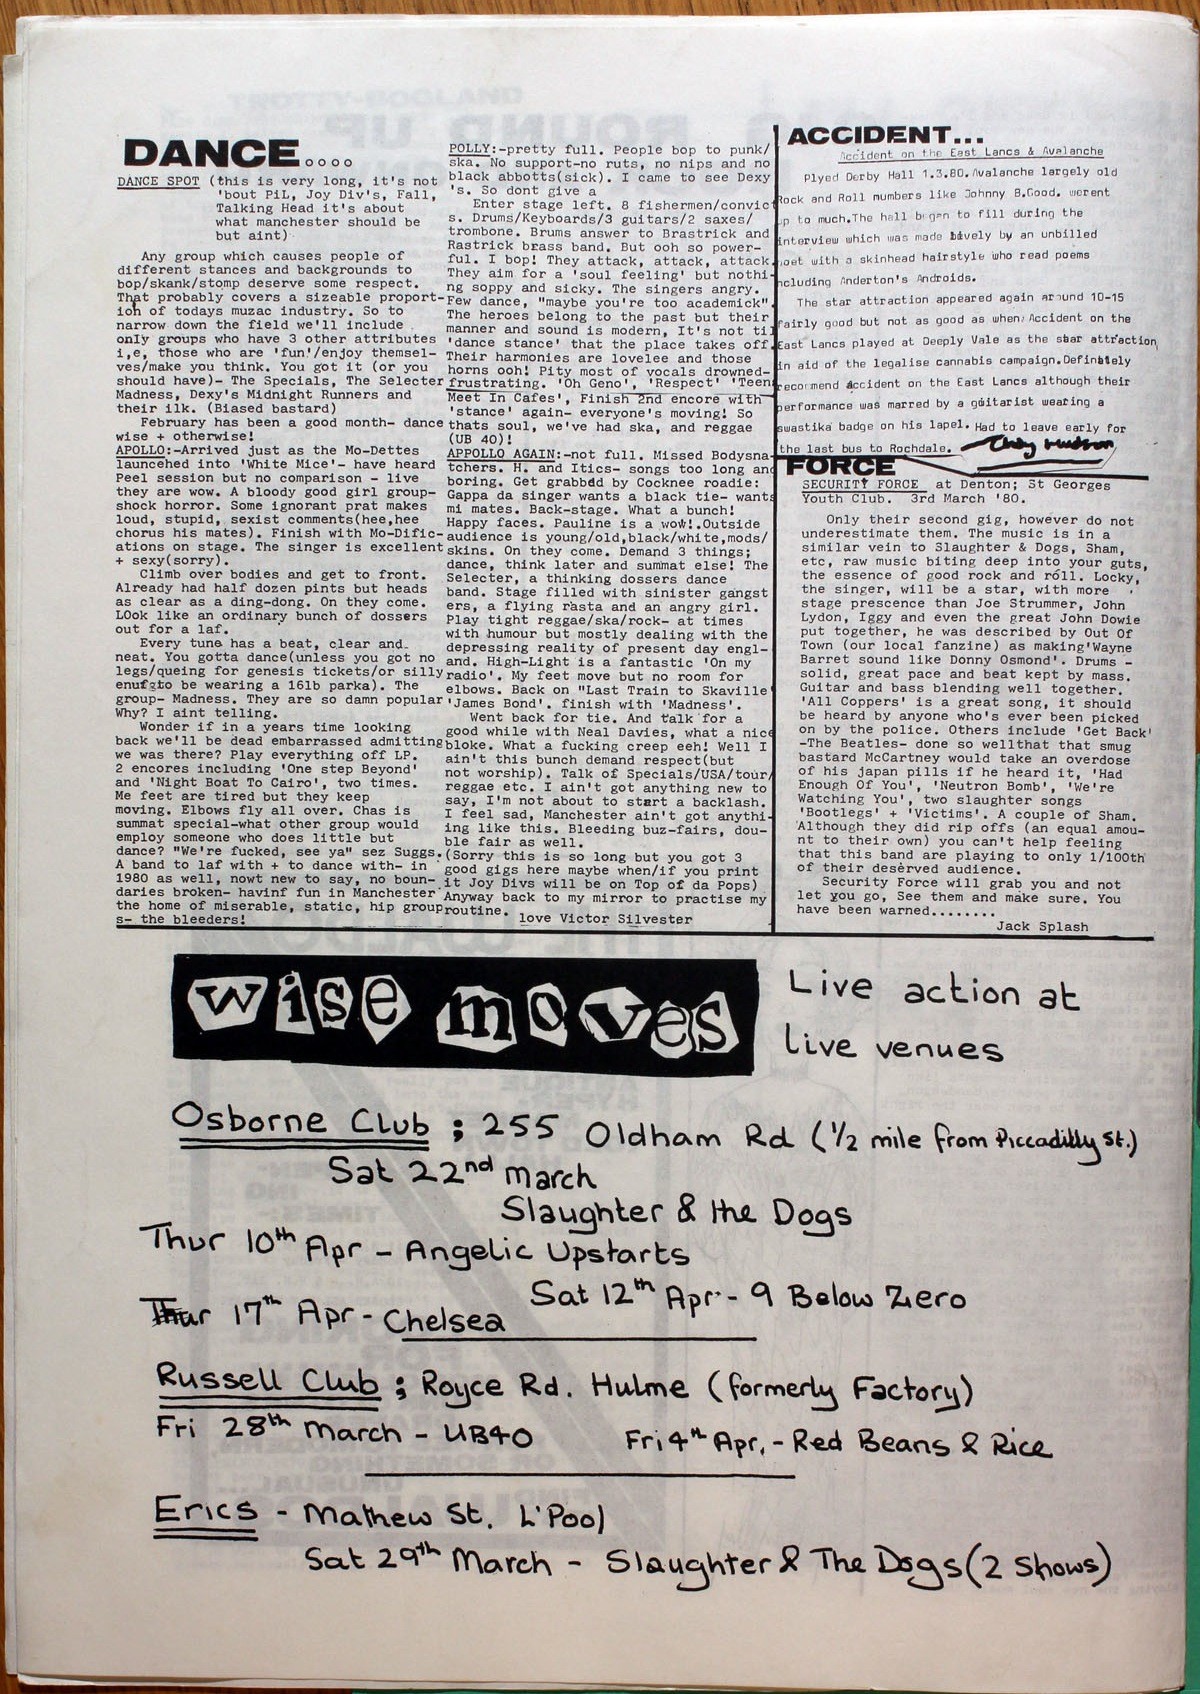 DANCE....
DANCE SPOT (this is very long, it's not
'bout PiL, Joy Div's, Fall,
Talking Head it's about
what manchester should be
but aint)
Any group which causes people of
different stances and backgrounds to
bop/skank/stomp deserve some respect.
That probably covers a sizeable proport-
ion of todays muzac industry. So to
narrow down the field we'll include
only groups who have 3 other attributes
i,e, those who are 'fun'/enjoy themsel-
ves/make you think. You got it (or you
should have)- The Specials, The Selecter
Madness, Dexy's Midnight Runners and
their ilk. (Biased bastard)
February has been a good month- dance
wise + otherwise!
APOLLO:-Arrived just as the Mo-Dettes
launcehed into 'White Mice'- have heard
Peel session but no comparison - live
they are wow. A bloody good girl group-
shock horror. Some ignorant prat makes
loud, stupid, sexist comments(hee,hee
chorus his mates). Finish with Mo-Dific-
ations on stage. The singer is excellent
+ sexy(sorry).
Climb over bodies and get to front.
Already had half dozen pints but heads
as clear as a ding-dong. On they come.
LOok like an ordinary bunch of dossers
out for a laf.
Every tune has a beat, clear and
neat. You gotta dance(unless you got no
legs/queing for genesis tickets/or silly
enufgto be wearing a 16lb parka). The
group- Madness. They are so damn popular
Why? I aint telling.
Wonder if in a years time looking
back we'll be dead embarrassed admitting
we was there? Play everything off LP.
2 encores including 'One step Beyond'
and 'Night Boat To Cairo', two times.
Me feet are tired but they keep
moving. Elbows fly all over. Chas is
summat special-what other group would
employ someone who does little but
dance? "We're fucked, see ya" sez Suggs.
A band to laf with + to dance with- in
1980 as well, nowt new to say, no boun-
daries broken- havinf fun in Manchester
the home of miserable, static, hip group
s- the bleeders!
POLLY:-pretty full. People bop to punk/
ska. No support-no ruts, no nips and no
black abbotts(sick). I came to see Dexy
's. So dont give a
Enter stage left. 8 fishermen/convict
s. Drums/Keyboards/3 guitars/2 saxes/
trombone. Brums answer to Brastrick and
Rastrick brass band. But ooh so power-
ful. I bop! They attack, attack, attack.
They aim for a 'soul feeling' but nothi-
ng soppy and sicky. The singers angry.
Few dance, "maybe you're too academick".
The heroes belong to the past but their
manner and sound is modern, It's not til
'dance stance' that the place takes off.
Their harmonies are lovelee and those
horns ooh! Pity most of vocals drowned-
frustrating. 'Oh Geno', 'Respect' 'Teen
Meet In Cafes', Finish 2nd encore with
'stance' again- everyone's moving! So
thats soul, we've had ska, and reggae
(UB 40)!
APPOLLO AGAIN:-not full. Missed Bodysna-
tchers. H. and Itics- songs too long and
boring. Get grabbed by Cocknee roadie:
Gappa da singer wants a black tie- wants
mi mates. Back-stage. What a bunch!
Happy faces. Pauline is a wow!.Outside
audience is young/old,black/white,mods/
skins. On they come. Demand 3 things;
dance, think later and summat else! The
Selecter, a thinking dossers dance
band. Stage filled with sinister gangst
ers, a flying rasta and an angry girl.
Play tight reggae/ska/rock- at times
with humour but mostly dealing with the
depressing reality of present day engl-
and. High-Light is a fantastic 'On my
radio'. My feet move but no room for
elbows. Back on "Last Train to Skaville'
'James Bond'. finish with 'Madness'.
Went back for tie. And talk for a
good while with Neal Davies, what a nice
bloke. What a fucking creep eeh! Well I
ain't this bunch demand respect(but
not worship). Talk of Specials/USA/tour/
reggae etc. I ain't got anything new to
say, I'm not about to start a backlash.
I feel sad, Manchester ain't got anythi-
ing like this. Bleeding buz-fairs, dou-
ble fair as well.
(Sorry this is so long but you got 3
good gigs here maybe when/if you print
it Joy Divs will be on Top of da Pops)
Anyway back to my mirror to practise my
routine. love Victor Silvester
ACCIDENT...
Accident on the East Lancs & Avalanche
Plyed Derby Hall 1.3.80. Avalanche largely old
Rock and Roll numbers like Johnny B.Good. werent
up to much.The hall began to fill during the
interview which was made lively by an unbilled
poet with a skinhead hairstyle who read poems
ncluding Anderton's Androids.
The star attraction appeared again around 10-15
fairly good but not as good as when Accident on the
East Lancs played at Deeply Vale as the star attraction
in aid of the legalise cannabis campaign.Definately
recormend Accident on the East Lancs although their
performance was marred by a guitarist wearing a
swastika badge on his lapel. Had to leave early for
the last bus to Rochdale.
FORCE
SECURITY FORCE at Denton; St Georges
Youth Club. 3rd March '80.
Only their second gig, however do not
underestimate them. The music is in a
similar vein to Slaughter & Dogs, Sham,
etc, raw music biting deep into your guts,
the essence of good rock and roll. Locky,
the singer, will be a star, with more
stage prescence than Joe Strummer, John
Lydon, Iggy and even the great John Dowie
put together, he was described by Out Of
Town (our local fanzine) as making'Wayne
Barret sound like Donny Osmond'. Drums -
solid, great pace and beat kept by mass.
Guitar and bass blending well together.
'All Coppers' is a great song, it should
be heard by anyone who's ever been picked
on by the police. Others include 'Get Back'
-The Beatles- done so wellthat that smug
bastard McCartney would take an overdose
of his japan pills if he heard it, 'Had
Enough Of You', 'Neutron Bomb', 'We're
Watching You', two slaughter songs
'Bootlegs' + 'Victims'. A couple of Sham.
Although they did rip offs (an equal amou-
nt to their own) you can't help feeling
that this band are playing to only 1/100th
of their deserved audience.
Security Force will grab you and not
let you go, See them and make sure. You
have been warned........
Jack Splash
wise moves
Live action at
live venues
Osborne Club ; 255 Oldham Rd (1/2 mile from Piccadilly St.)
Sat 22nd march
Slaughter & the Dogs
Thur 10th Apr - Angelic Upstarts
Sat 12th Apr - 9 Below Zero
Thur 17th Apr - Chelsea
Russell Club ; Royce Rd. Hulme (formerly Factory)
Fri 28th March - UB40 Fri 4th Apr. - Red Beans & Rice
Erics - Mathew St. L'Pool
Sat 29th March - Slaughter & The Dogs (2 shows)